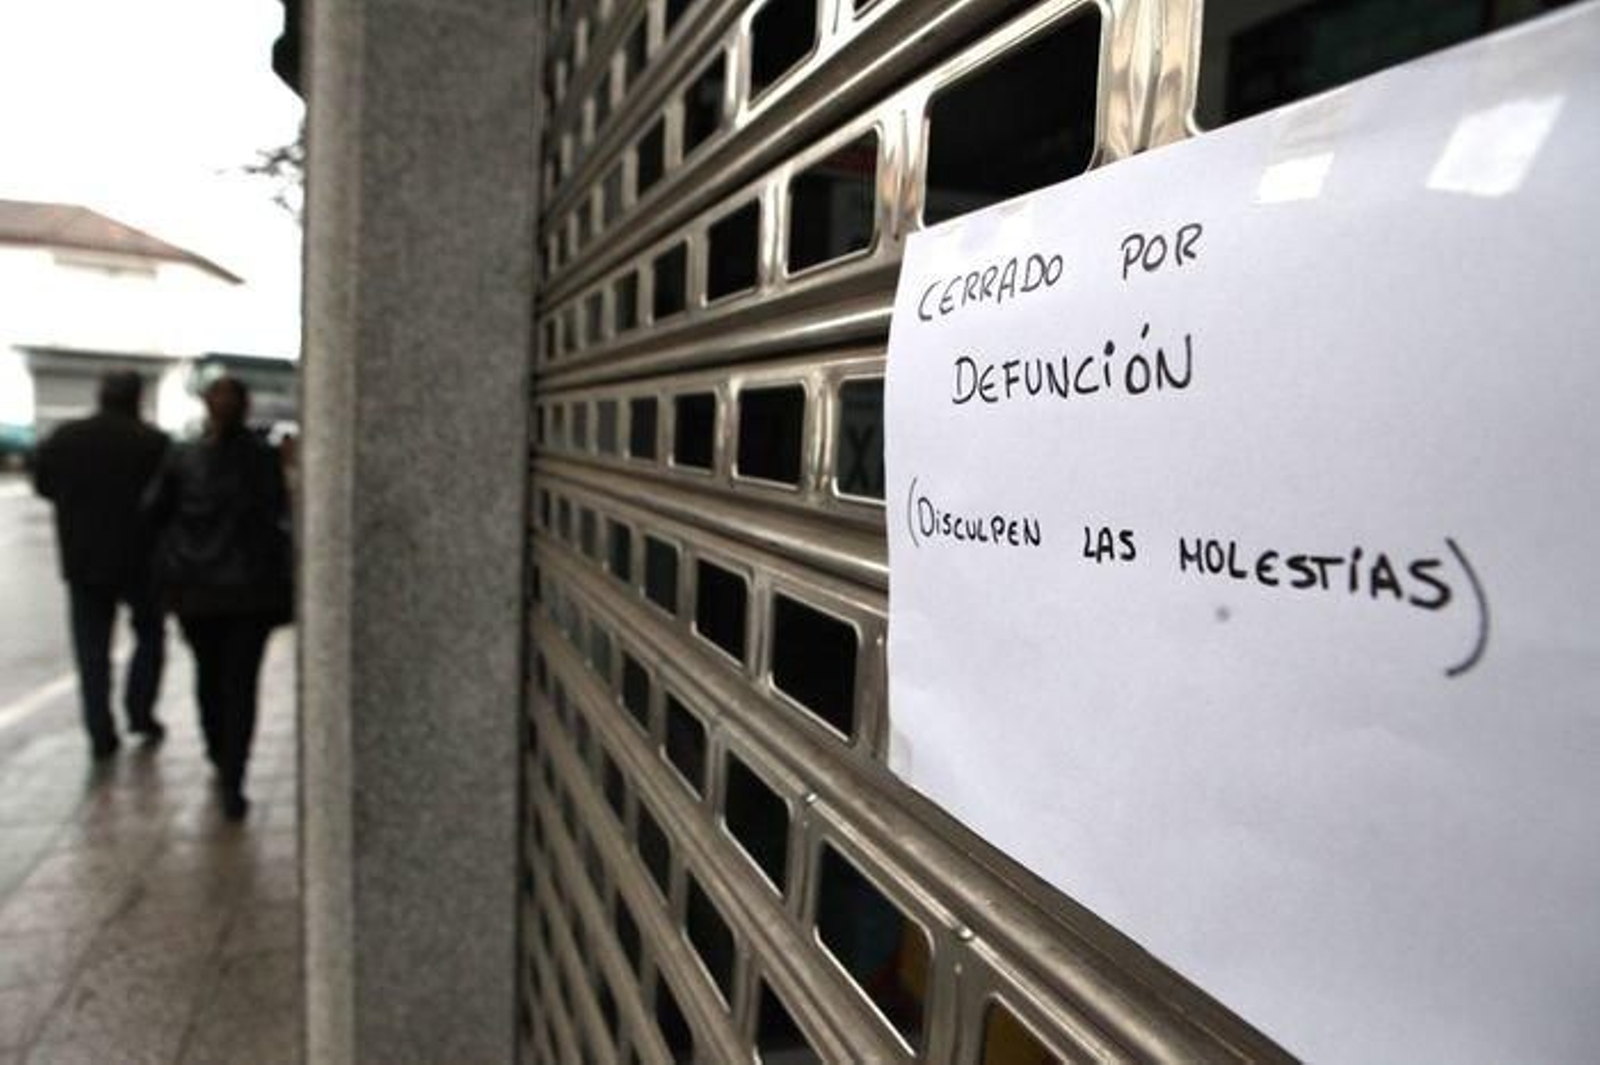 CERRADO POR
DEFUNCIÓN
(DISCULPEN LAS MOLESTIAS)